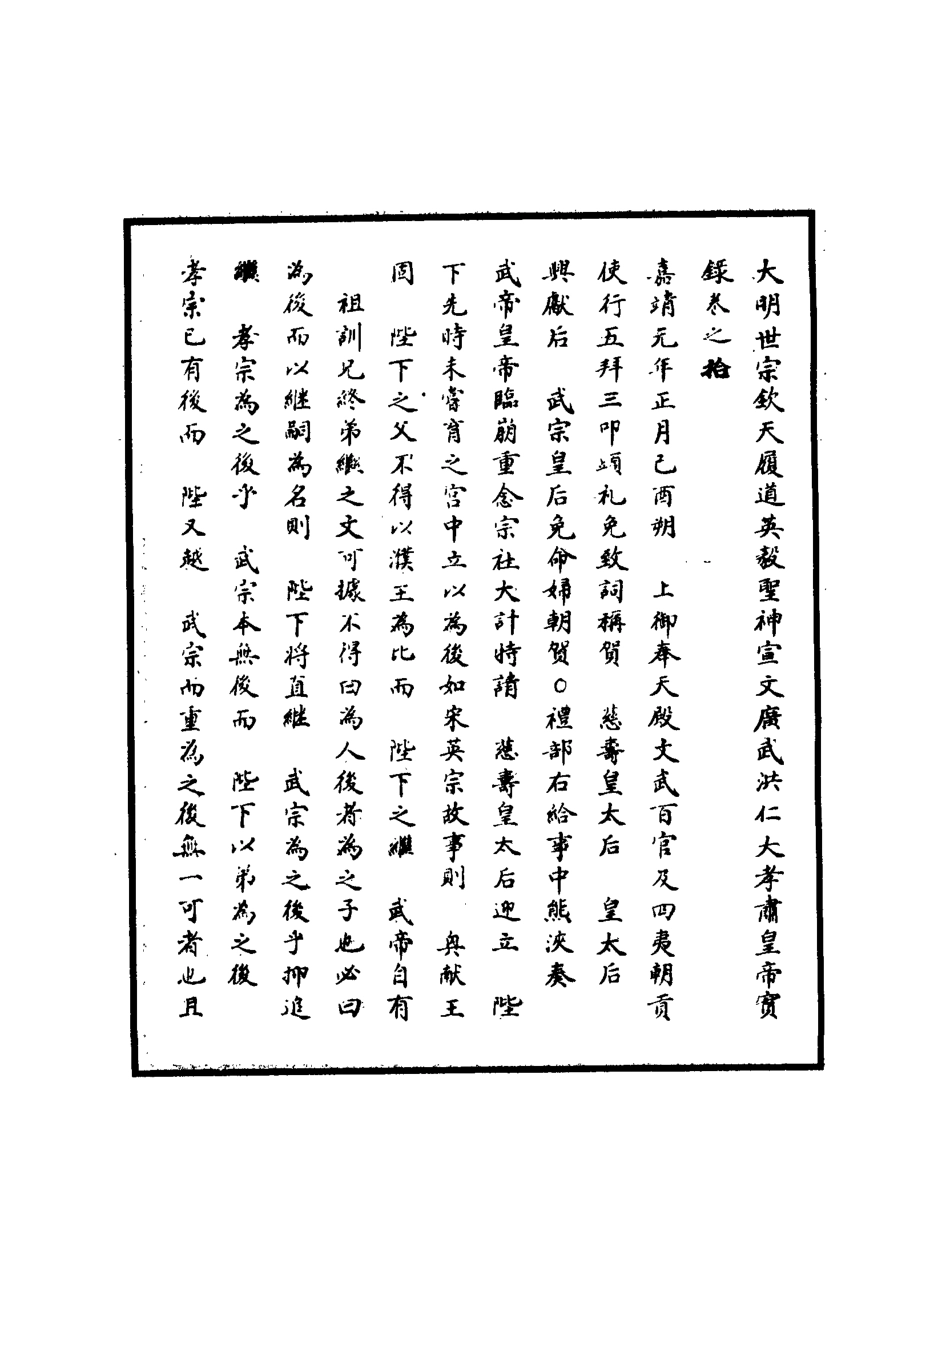 大明世宗欽天履道英毅聖神宣文廣武洪仁大孝肅皇帝實
錄卷之拾
嘉靖元年正月己酉朔　上御奉天殿文武百官及四夷朝貢
使行五拜三叩頭礼免致詞稱賀　慈壽皇太后　皇太后
興獻后　武宗皇后免命婦朝贺○禮部右給事中熊浹奏
武帝皇帝臨崩重念宗社大計特請　慈壽皇太后迎立　陛
下先時未嘗育之宫中立以為後如宋英宗故事則　興献王
固　陛下之父不得以濮王為比而　陛下之繼　武帝自有
　祖訓兄終弟繼之文可據不得曰為人後者為之子也必曰
為後而以継嗣為名則　陛下将直継　武宗為之後乎抑追
繼　孝宗為之後乎　武宗本無後而　陛下以弟為之後
孝宗已有後而　陛又越　武宗而重為之後無一可者也且